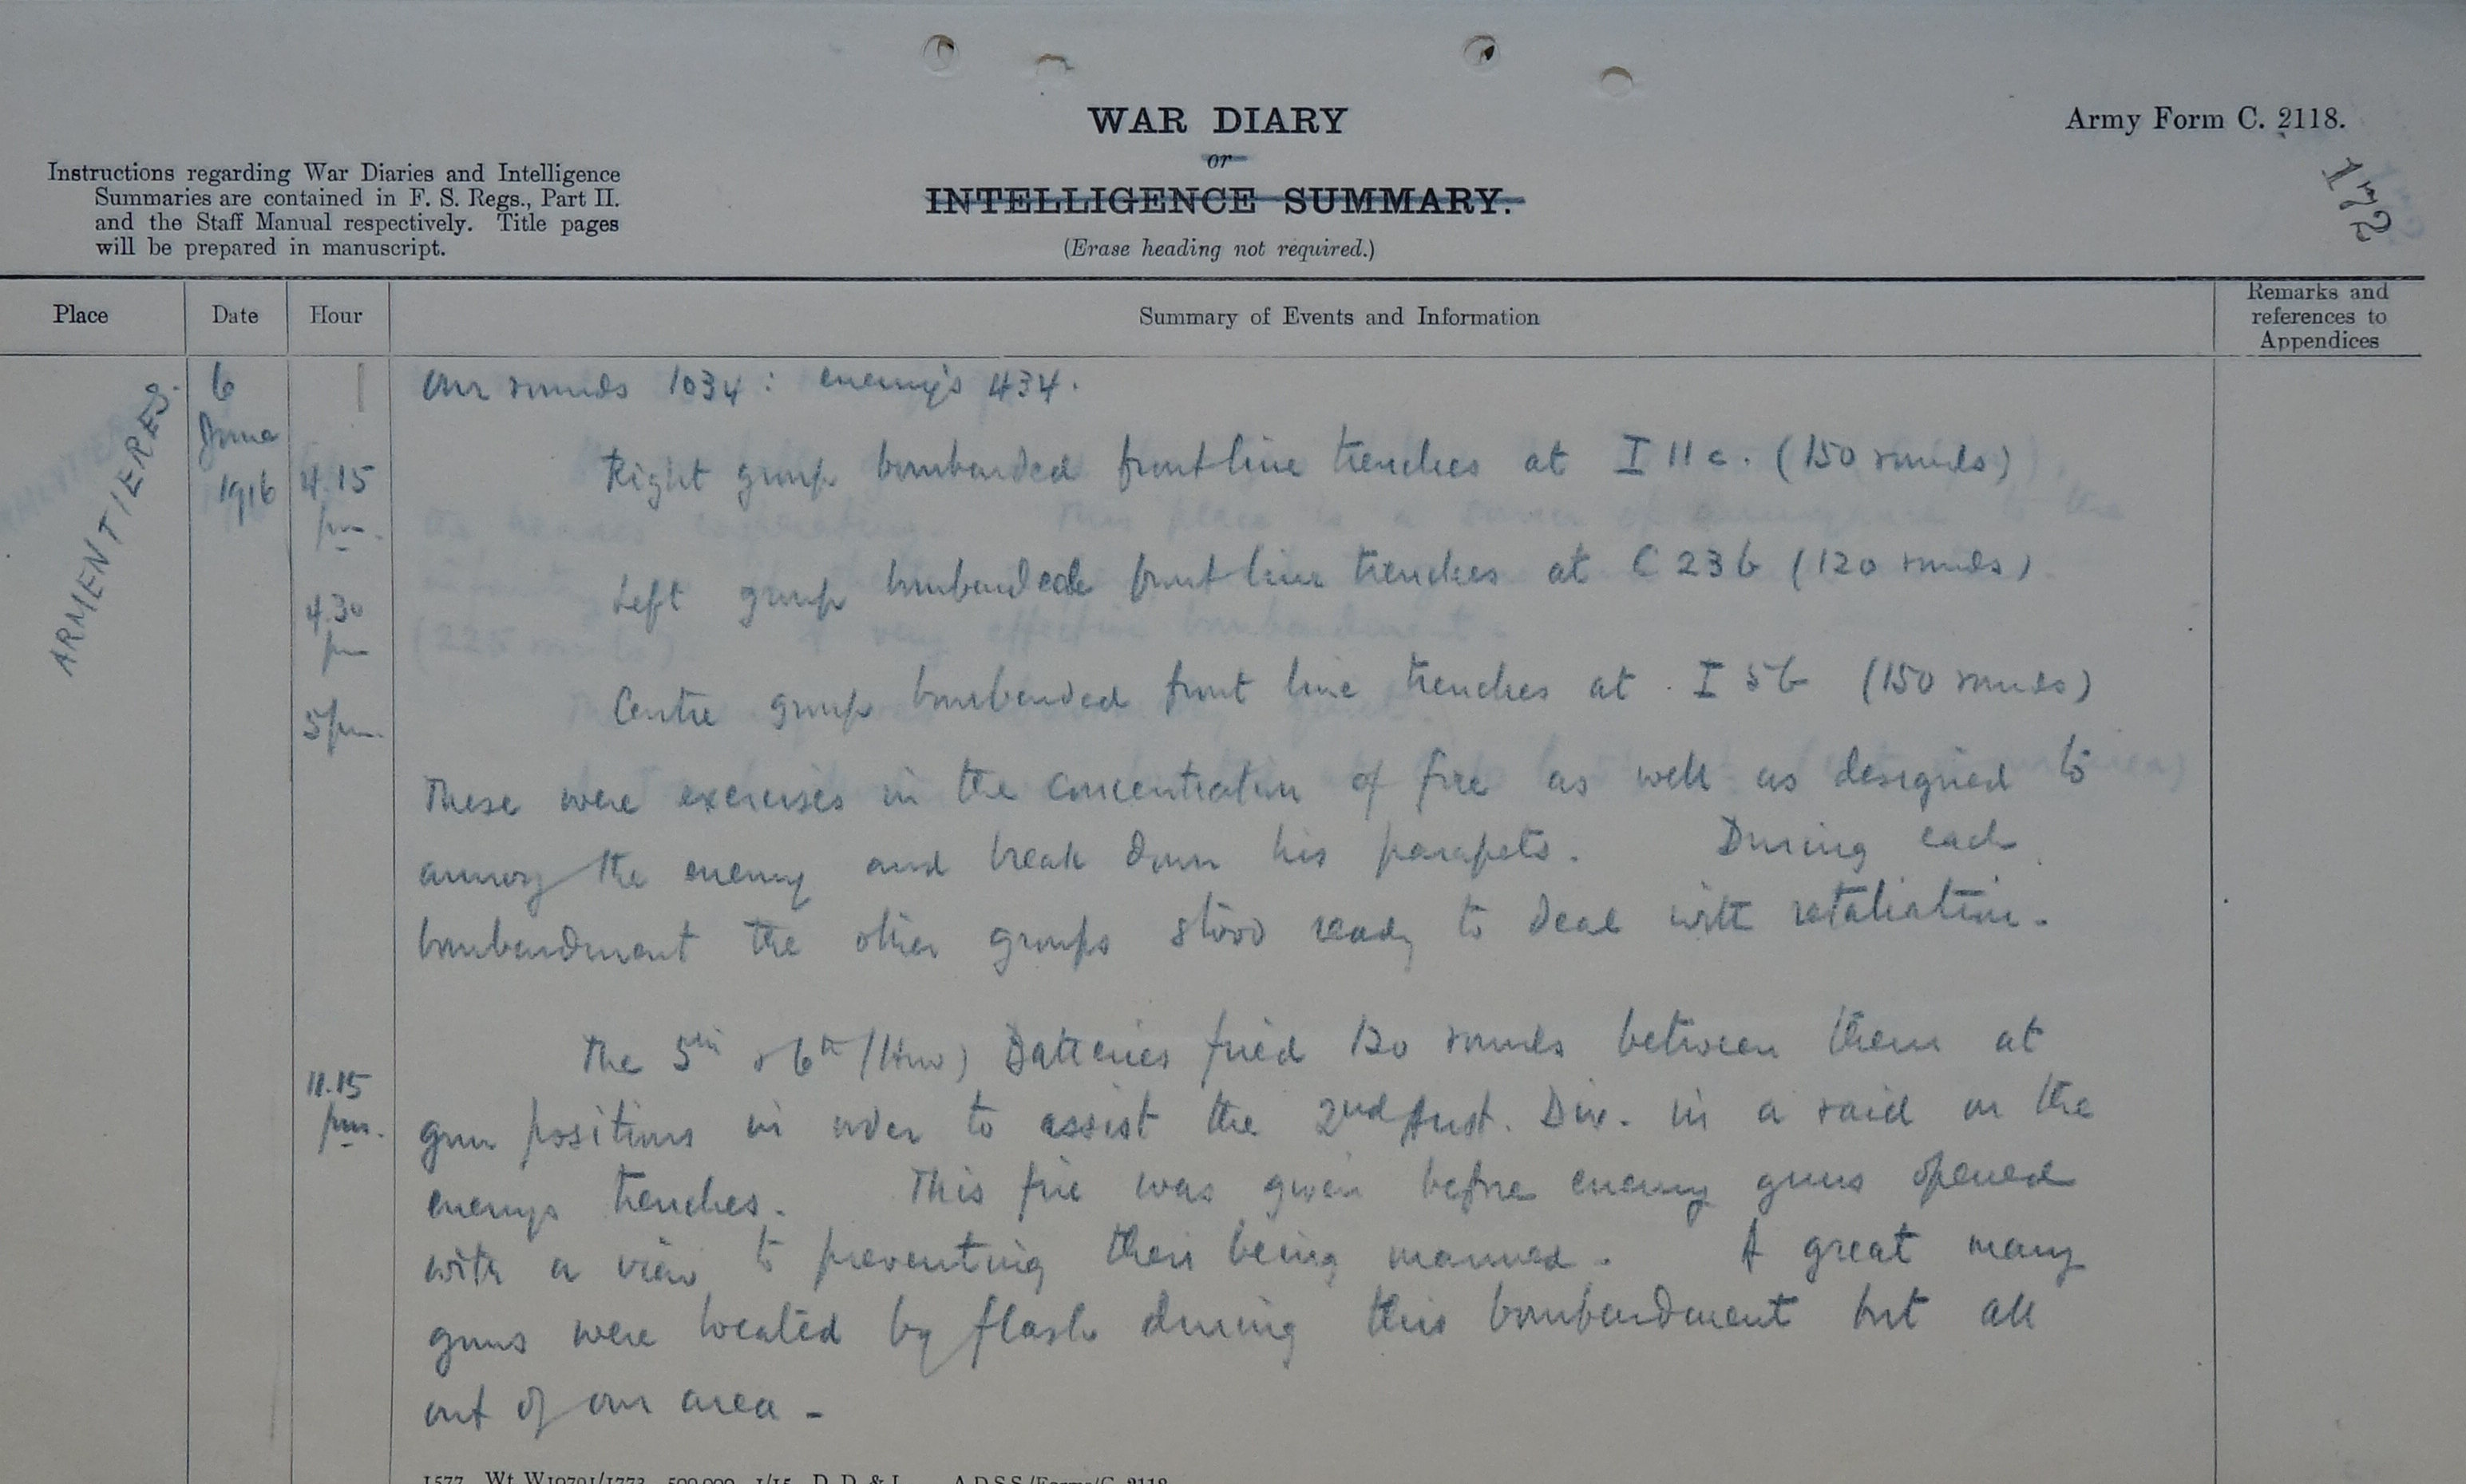 WAR DIARY
Army Form C. 2118.
or
INTELLIGENCE SUMMARY.
(Erase heading not required.)
172
Instructions regarding War Diaries and Intelligence
Summaries are contained in F. S. Regs., Part II.
and the Staff Manual respectively. Title pages
will be prepared in manuscript.
Place
Date
Hour
Summary of Events and Information
Remarks and
references to
Appendices
ARMENTIERES.
6
June
1916
our rounds 1034 : enemy's 434.
4.15
pm.
Right group bombarded front line trenches at I 11 c. (150 rounds)
4.30
pm
Left group bombarded front line trenches at C 23 b (120 rounds)
5 pm.
Centre group bombarded front line trenches at I 5 b (150 rounds)
These were exercises in the concentration of fire as well as designed to
annoy the enemy and break down his parapets. During each
bombardment the other groups stood ready to deal with retaliation.
11.15
pm.
The 5th & 6th (How) Batteries fired 120 rounds between them at
gun positions in order to assist the 2nd Aust. Div. in a raid on the
enemys trenches. This fire was given before enemy guns opened
with a view to preventing their being manned. A great many
guns were located by flash during this bombardment but all
out of our area -